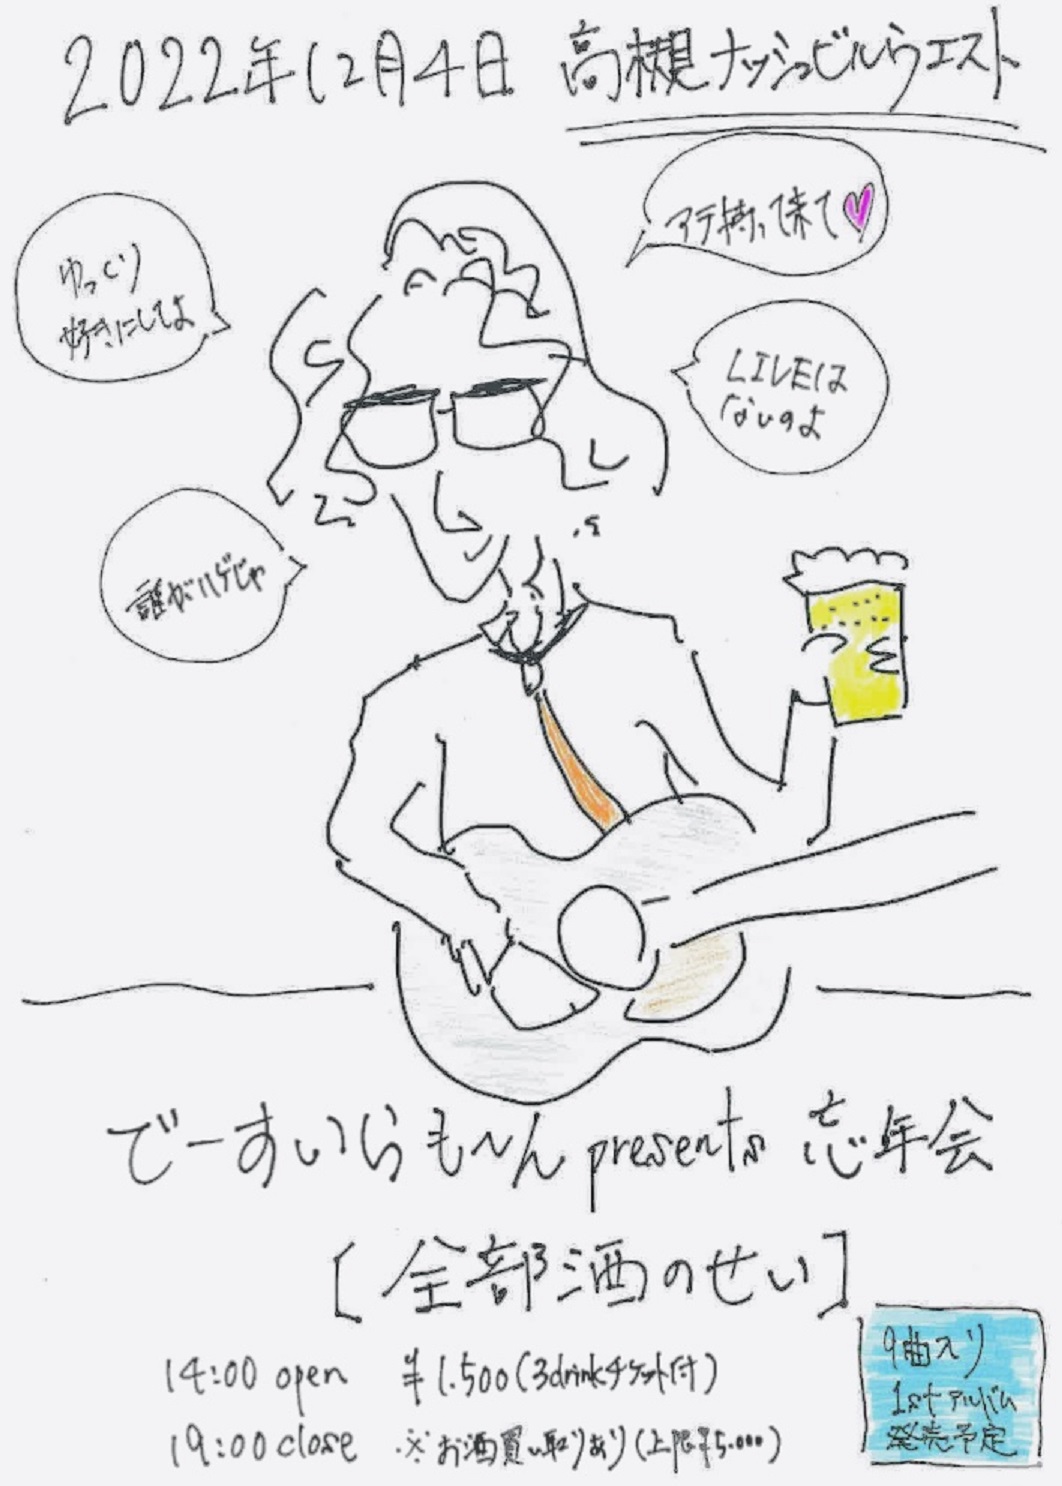 2022年12月4日 高槻ナッシュビルウエスト
アテ持って来て
ゆっくり
好きにしてよ
LIVEは
ないのよ
誰がハゲじゃ
でーすいらも〜ん presents 忘年会
[全部酒のせい]
14:00 open ¥1.500(3drinkチケット付)
19:00 close ※お酒買い取りあり(上限¥5.000)
9曲入り
1stアルバム
発売予定